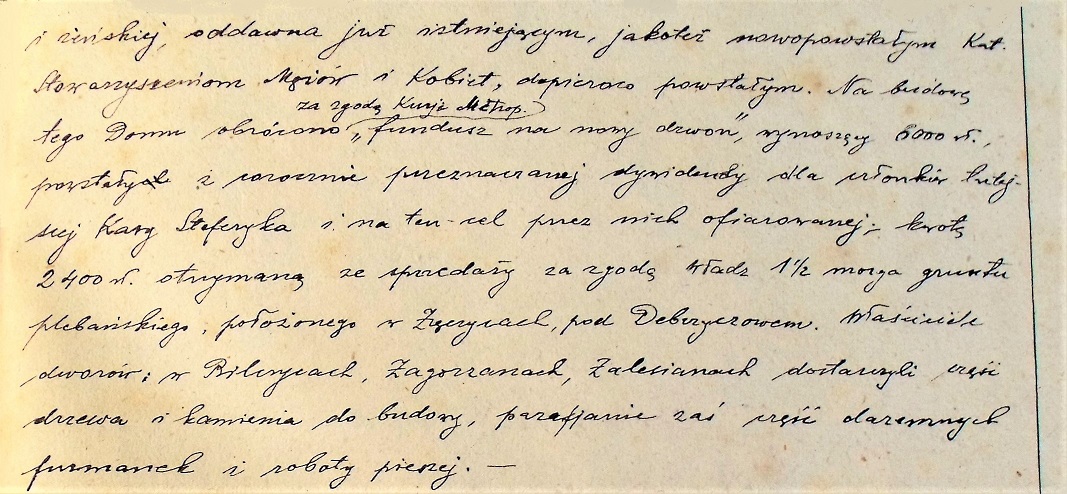 i żeńskiej, oddawna już istniejącym, jakoteż nowopowstałym Kat.
Stowarzyszeniom Mężów i Kobiet, dopieroco powstałym. Na budowę
za zgodą Kurji Metrop.
tego Domu obrócono „fundusz na nowy dzwon”, wynoszący 6000 zł.,
powstały z corocznie przeznaczanej dywidendy dla członków tutej-
szej Kasy Stefczyka i na ten cel przez nich ofiarowanej; kwotę
2400 zł. otrzymaną ze sprzedaży za zgodą Władz 1½ morga gruntu
plebańskiego, położonego w Zręczycach, pod Dobczycami. Właściciele
dworów: w Bilczycach, Zagórzanach, Zalesianach dostarczyli część
drzewa i kamienia do budowy, parafjanie zaś część daremnych
furmanek i roboty pieszej. —